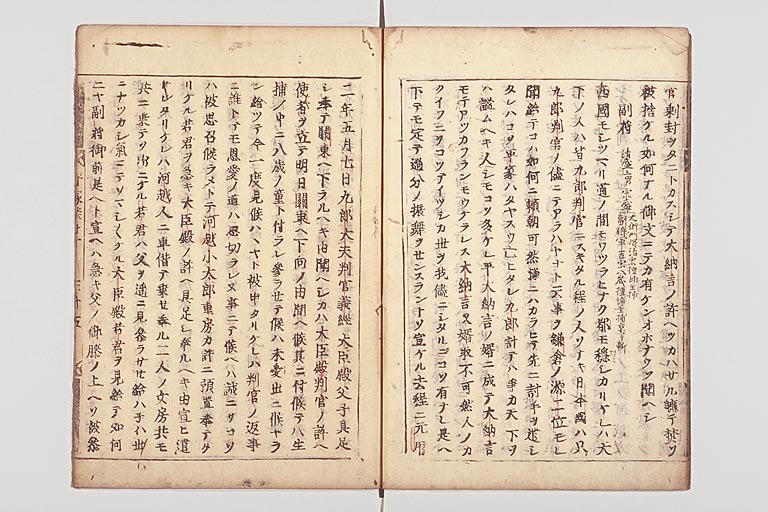 官ノ封ヲタニトカスシテ大納言ノ許ヘツカハサル軈テ焚ツ
被捨ケル如何ナル御文ニテカ有ケンオホナウツ聞ヘシ
副将
西國モシツマリ道ノ間モワツラヒナク都モ穏シカリケレハ大
下ノ人ハ皆九郎判官ニスキタル程ノ人ソナキ日本國ハ只
九郎判官ノ儘ニテアラハヤナト云事ヲ鎌倉ノ源二位モレ
聞給テコハ如何ニ頼朝可然様ニハカラヒテ先ニ討手ヲ遣シ
タレハコソ平家ハタヤスウ亡ヒタレ九郎計テハ争カ天下ヲ
ハ謐ムヘキ人シモコソ多ケレ平大納言ノ婿ニ成テ大納言
モテアツカフランモウケラレス大納言又婿取不可然人ノカ
クイフニヲコツアイツシカ世ヲ我儘ニシタルゴコソ有ナレ是ヘ
下テモ定テ過分ノ振舞ヲセンスラントソ宣ケル去程ニ元暦
二年五月七日九郎大夫判官義經大臣殿父子具足
シ奉テ關東ヘ下ラルヘキ由聞ヘシカハ大臣殿判官ノ許ヘ
使者ヲ立テ明日關東ヘ下向ノ由聞ヘ候其ニ付候テハ生
捕ノ中ニ八歳ノ童ト付ラレ参ラセテ候ハ未愛出ニ候ヤラ
ン給ツテ今一度見候ハヽヤト被申タリケレハ判官ノ返事
ニ誰トテモ恩愛ノ道ハ思切ラレヌ事ニテ候ヘハ誠ニサコソ
ハ被思召候ラメトテ河越小太郎重房カ許ニ預置奉テケ
リケル若君ヲ急キ大臣殿ノ許ヘ具足シ奉ルヘキ由宣ヒ遣
サレタリケレハ河越人ニ車借テ乗セ奉ル二人ノ女房共モ
共ニ乗テソ出ニケル若君ハ父ヲ遥ニ見参ラサセ給ハ子ハ世
ニナツカシ氣ニテソマシ〳〵ケル大臣殿若君ヲ見給テ如何
ニヤ副将御前是ヘト宣ヘハ急キ父ノ御膝ノ上ヘソ被参